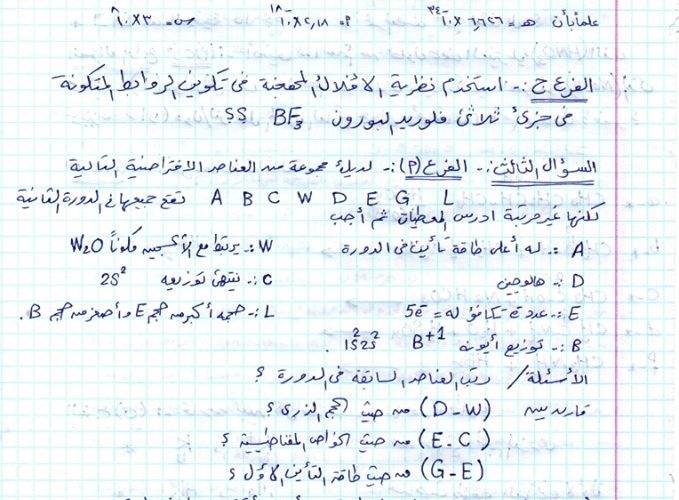 علماً بأن هـ = ٦,٦٢٦ × ١٠ ٣٤- م = ٢,١٨ × ١٠ ١٨- س = ٣ × ١٠ ٨
الفرع ج :- استخدم نظرية الأفلاك المهجنة في تكوين الروابط المتكونة
في جزئ ثلاثي فلوريد البورون BF3 ؟؟
السؤال الثالث :- الفرع (م) :- لديك مجموعة من العناصر الافتراضية التالية
A B C W D E G L تقع جميعها في الدورة الثانية
لكنها غير مرتبة ادرس المعطيات ثم أجب
A :- له أعلى طاقة تأين في الدورة W :- يرتبط مع الأكسجين مكوناً W2O
D :- هالوجين C :- ينتهي توزيعه 2S²
E :- عدد ة تكافؤ له = 5e̅ L :- حجمه أكبر من حجم E وأصغر من حجم B .
B :- توزيع أيونه B+1 1S² 2S² .
الأسئلة / رتب العناصر السابقة في الدورة ؟
قارن بين (D-W) من حيث الحجم الذري ؟
(E.C) من حيث الخواص المغناطيسية ؟
(G-E) من حيث طاقة التأين الأول ؟